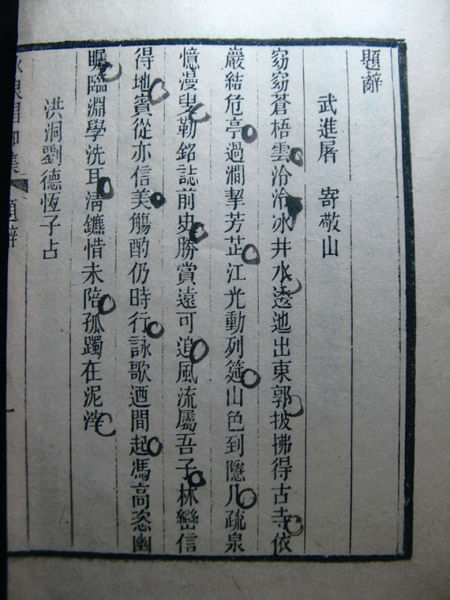 題辭
武進屠 寄敬山
窈窈蒼梧雲泠泠冰井水逶迆出東郭披拂得古寺依
巖結危亭過澗挈芳芷江光動列筵山色到隱几疏泉
憶漫叟勒銘誌前史勝賞遠可追風流屬吾子林巒信
得地賓從亦信美觴酌仍時行詠歌迺間起馮高恣幽
矚臨淵學洗耳清讌惜未陪孤躅在泥滓
洪洞劉德恆子占
泉唱和集 題辭 一